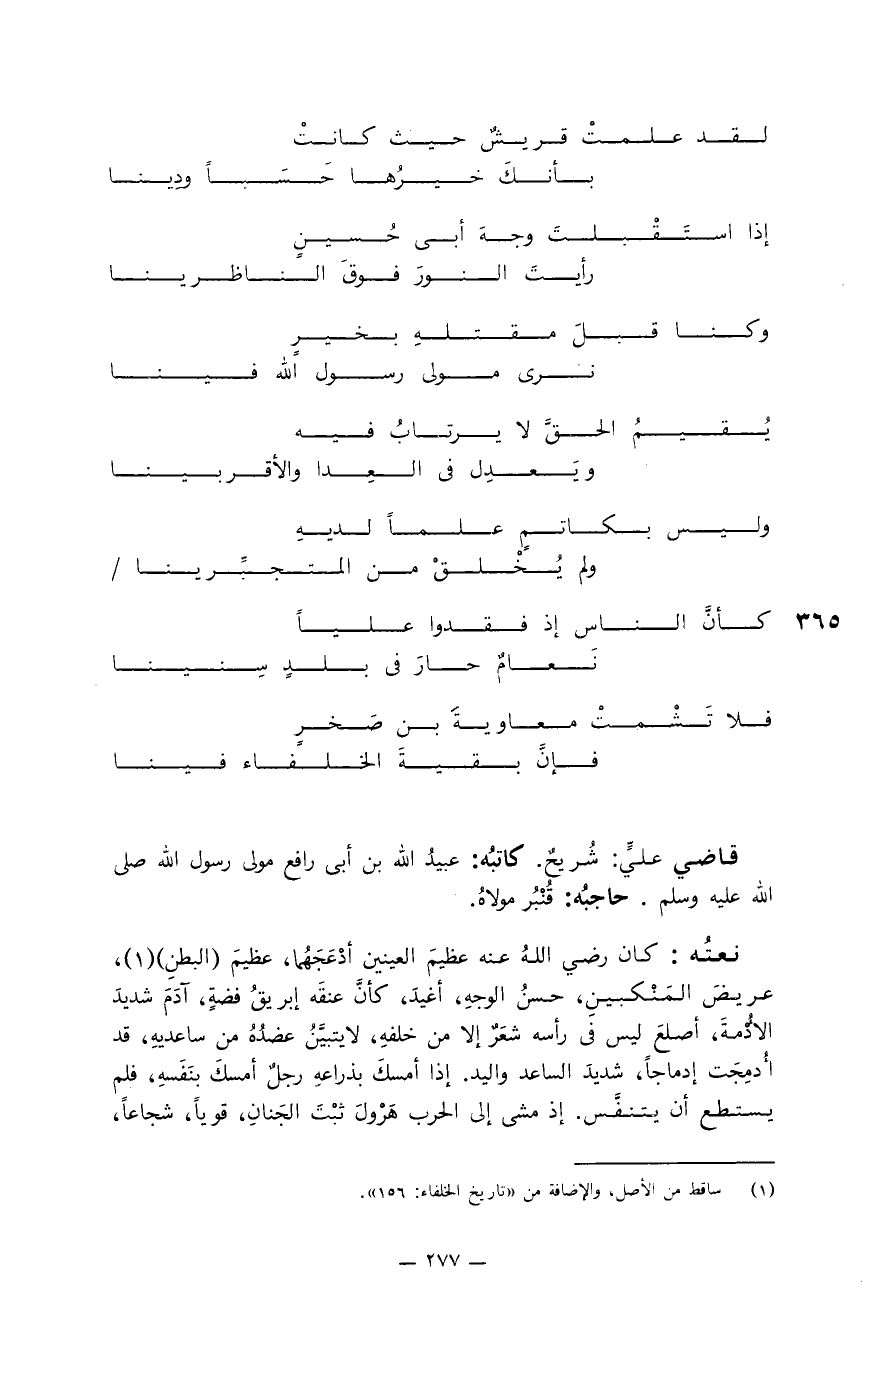 لقد علمتْ قريشٌ حيث كانتْ
بأنكَ خيرُها حَسَباً ودِينا
إذا استَقْبلتَ وجهَ أبى حُسينٍ
رأيتَ النورَ فوقَ الناظرينا
وكنا قبلَ مقتلهِ بخيرٍ
نرى مولى رسول الله فينا
يُقيمُ الحقَّ لا يرتابُ فيه
ويَعدِل فى العِدا والأقربينا
وليس بكاتمٍ علماً لديهِ
ولم يُخْلقْ من المتجبِّرينا /
٣٦٥ كأنَّ الناس إذ فقدوا علياً
نَعامٌ حارَ فى بلدٍ سِنينا
فلا تَشْمتْ معاويةَ بن صَخرٍ
فإنَّ بقيةَ الخلفاء فينا
قاضي عليٍّ: شُريحٌ. كاتبُه: عبيدُ الله بن أبى رافع مولى رسول الله صلى
الله عليه وسلم . حاجبُه: قُنْبُر مولاهُ.
نعتُه : كان رضي اللهُ عنه عظيمَ العينين أدْعَجَهُما، عظيمَ (البطنِ)(١)،
عريضَ المَنْكبينِ، حسنُ الوجهِ، أغيدَ، كأنَّ عنقَه إبريقُ فضةٍ، آدَمَ شديدَ
الأُدْمةَ، أصلعَ ليس فى رأسه شعَرٌ إلا من خلفهِ، لايتبيَّنُ عضدُهُ من ساعديهِ، قد
أُدمِجَت إدماجاً، شديدَ الساعد واليد. إذا أمسكَ بذراعهِ رجلٌ أمسكَ بنَفَسهِ، فلم
يستطع أن يتنفَّس. إذ مشى إلى الحرب هَرْولَ ثبْتَ الجَنانِ، قوياً، شجاعاً،
(١) ساقط من الأصل، والإضافة من «تاريخ الخلفاء: ١٥٦».
— ٢٧٧ —